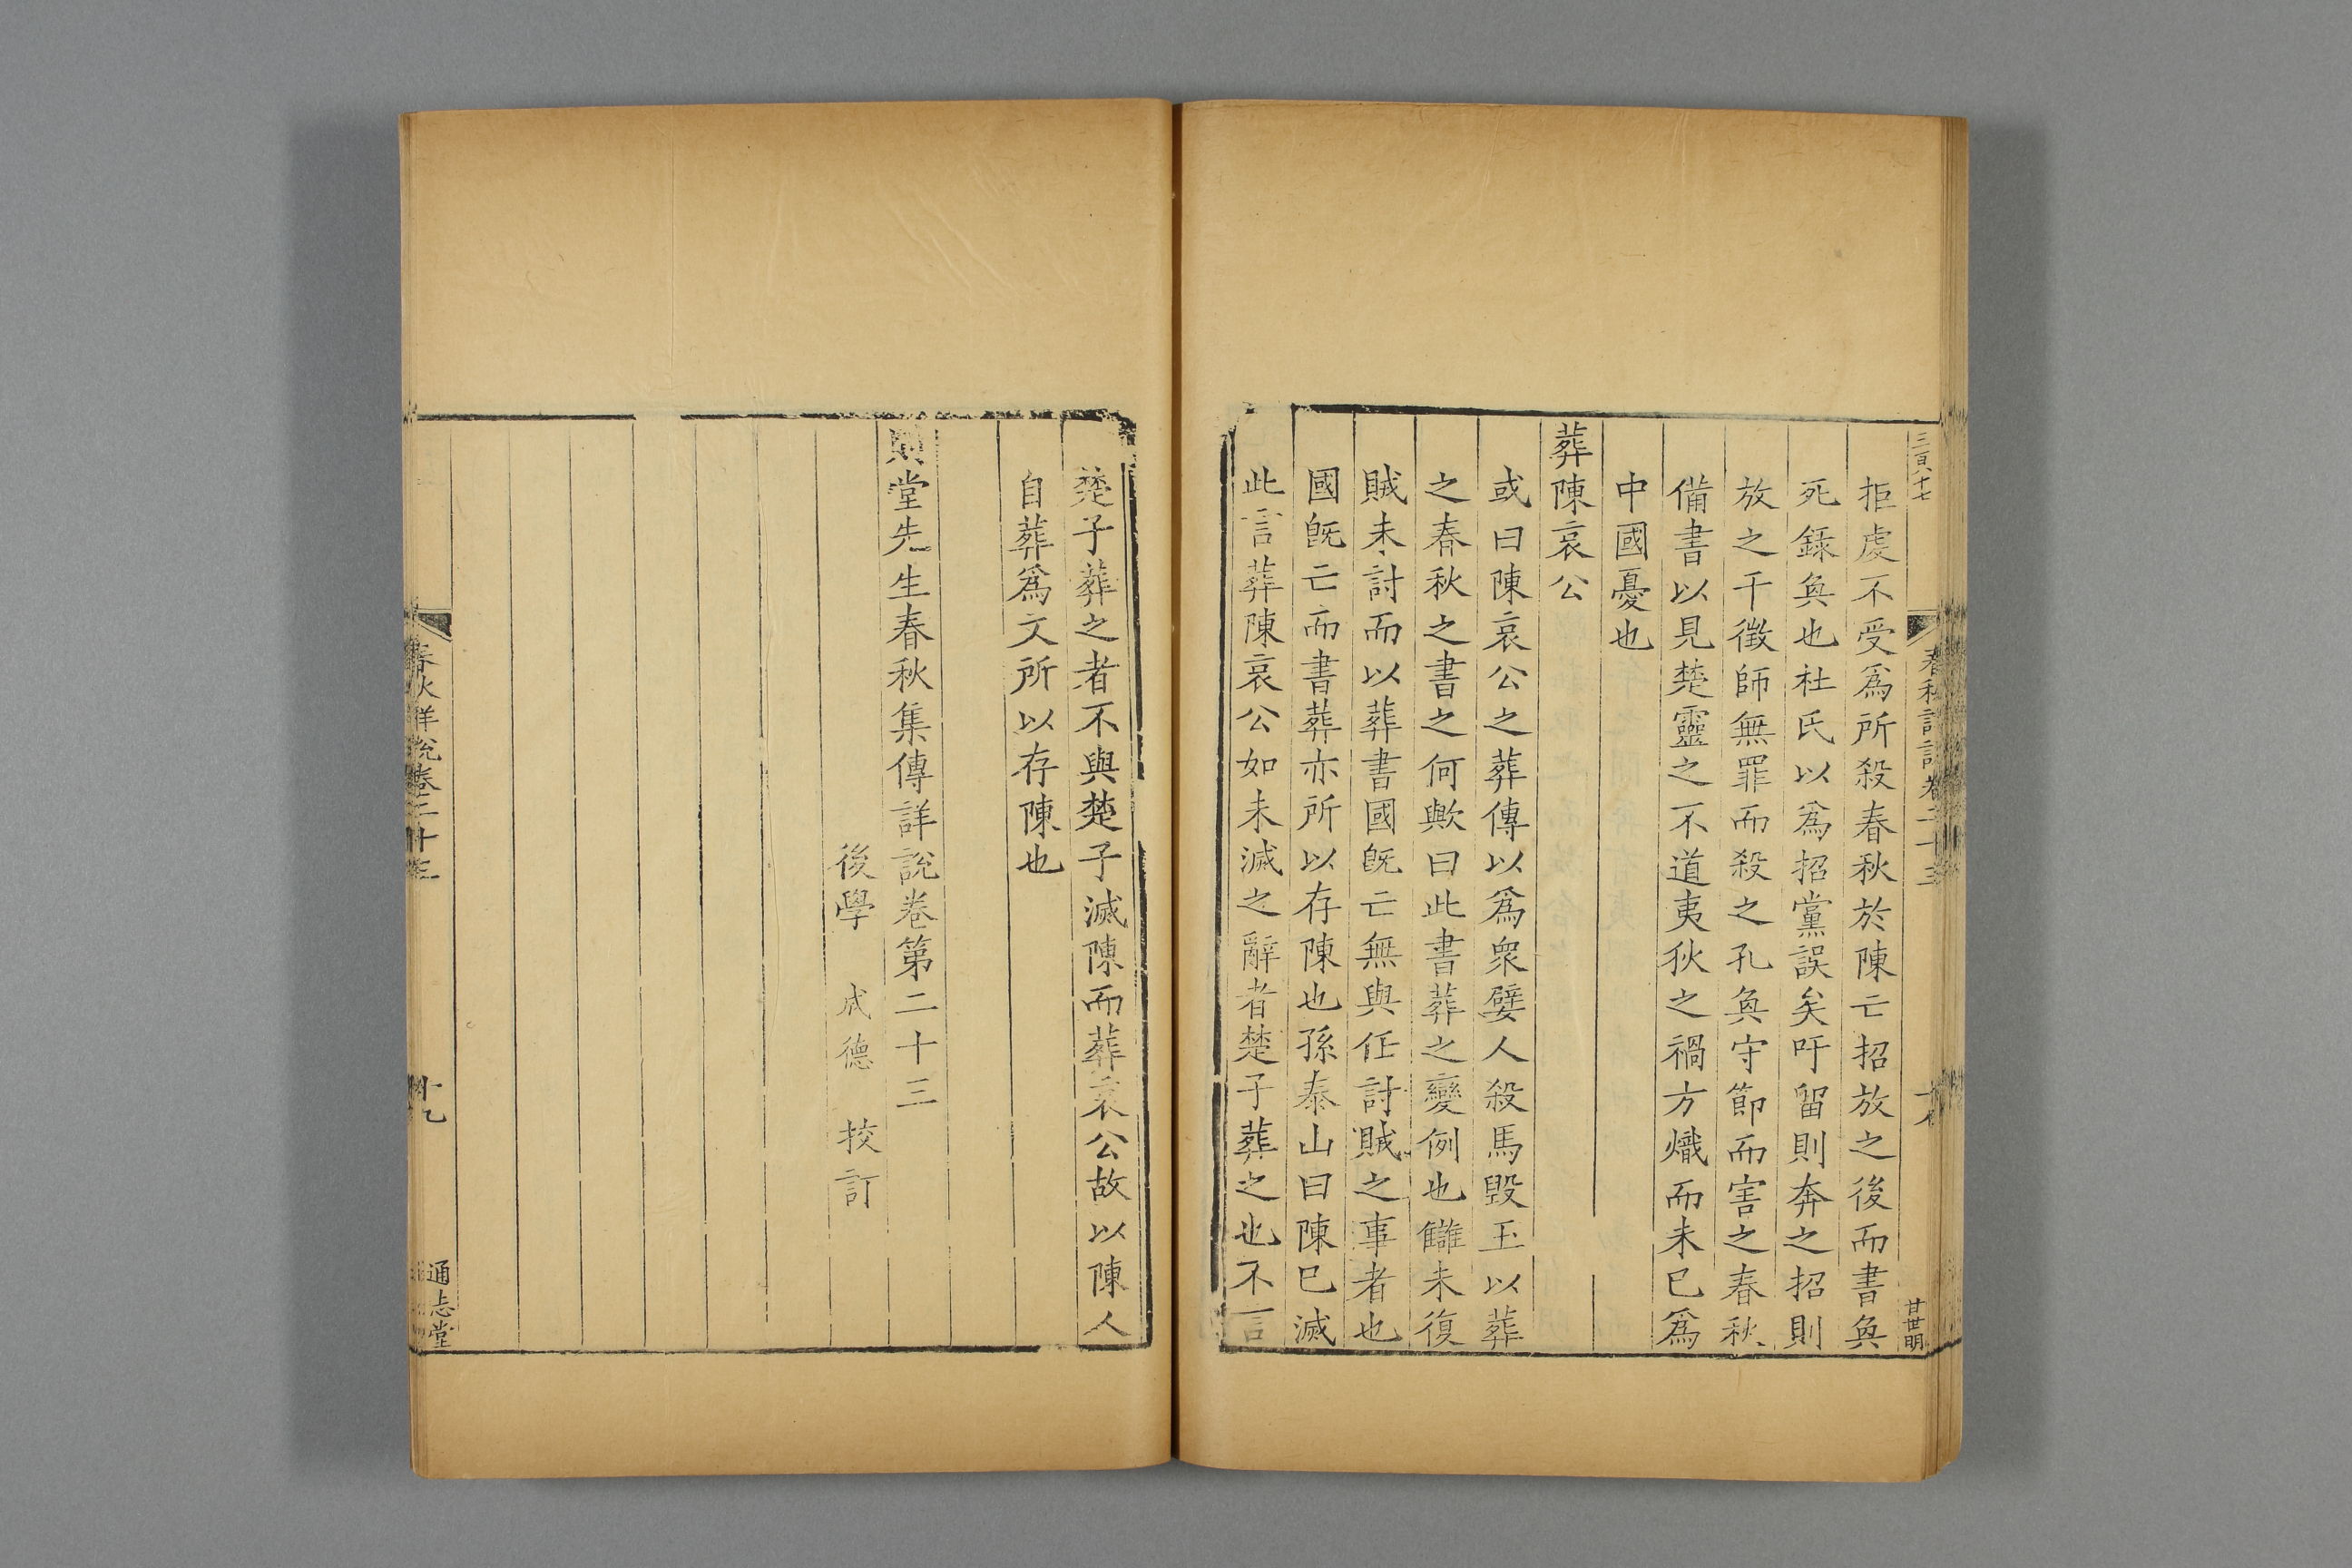 三百八十七
春秋詳說卷二十三
十八
甘世明
拒虔不受爲所殺春秋於陳亡招放之後而書奐
死錄奐也杜氏以爲招黨誤矣吁留則奔之招則
放之干徵師無罪而殺之孔奐守節而害之春秋
備書以見楚靈之不道夷狄之禍方熾而未已爲
中國憂也
葬陳哀公
或曰陳哀公之葬傳以爲衆嬖人殺馬毀玉以葬
之春秋之書之何歟曰此書葬之變例也讎未復
賊未討而以葬書國旣亡無與任討賊之事者也
國旣亡而書葬亦所以存陳也孫泰山曰陳已滅
此言葬陳哀公如未滅之辭者楚子葬之也不言
楚子葬之者不與楚子滅陳而葬哀公故以陳人
自葬爲文所以存陳也
則堂先生春秋集傳詳說卷第二十三
後學 成德 校訂
春秋詳說卷二十三
十九
通志堂